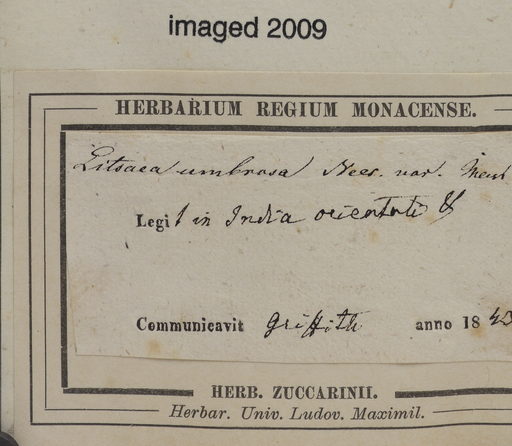 imaged 2009
HERBARIUM REGIUM MONACENSE.
Litsaea umbrosa Nees. var.
Legit in India orientali
Communicavit Griffith anno 1843
HERB. ZUCCARINII.
Herbar. Univ. Ludov. Maximil.